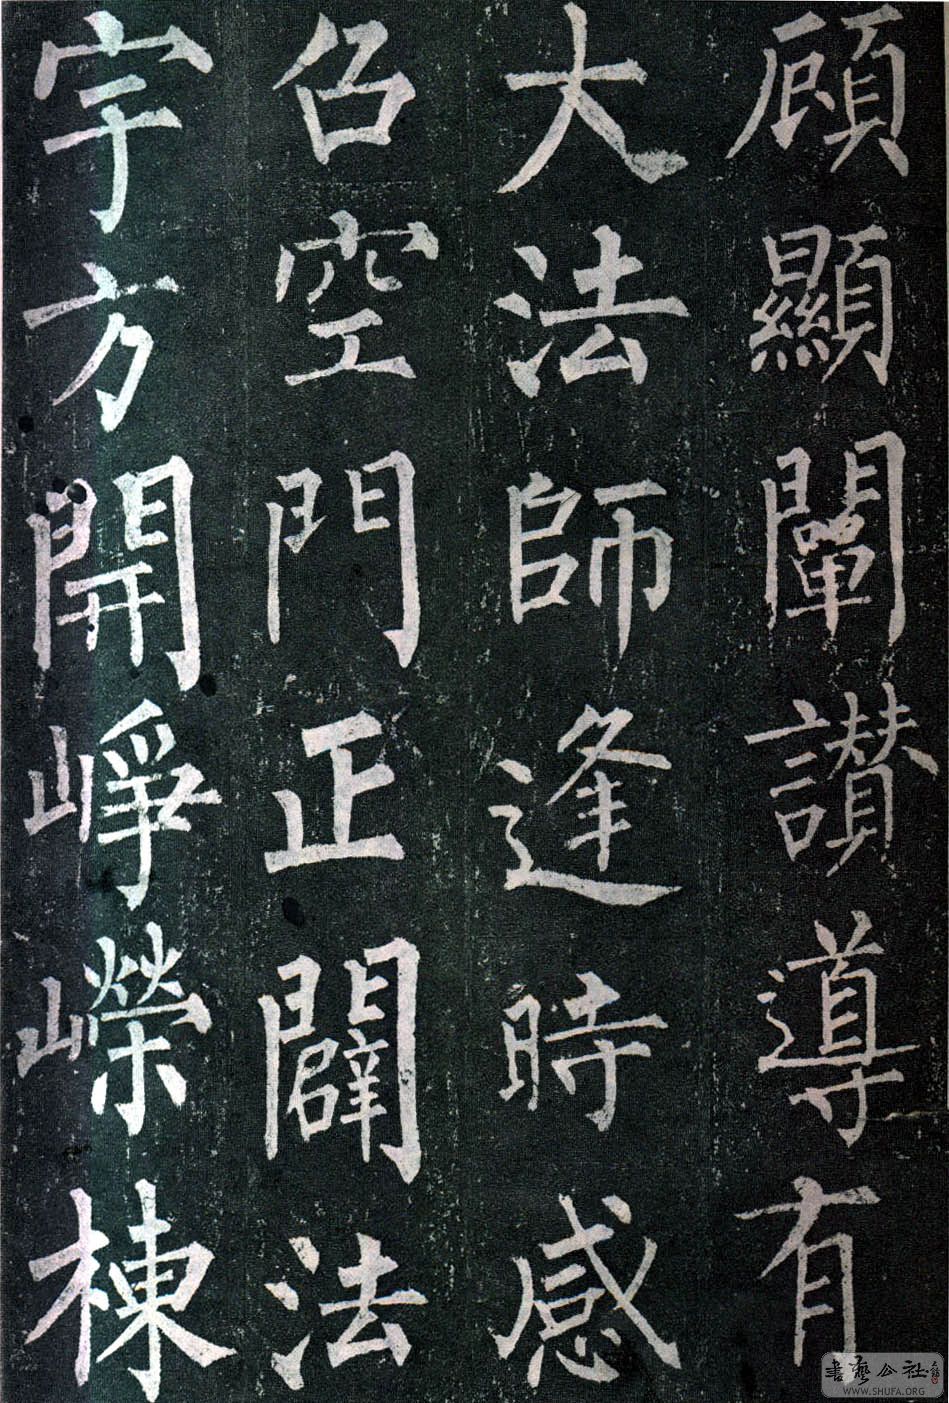 顧顯闡讃導有
大法師逢時感
召空門正闢法
宇方開崢嶸棟
書藝公社
WWW.SHUFA.ORG